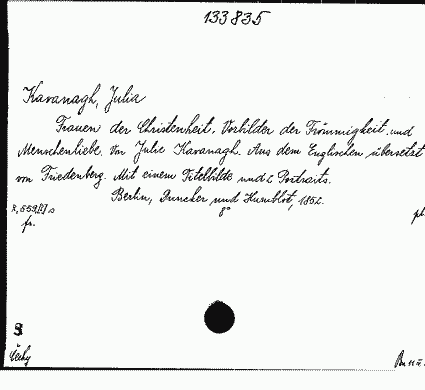 133835
Kavanagh, Julia
Frauen der Christenheit. Vorbilder der Frömmigkeit und
Menschenliebe. Von Julie Kavanagh. Aus dem Englischen übersetzt
von Friedenberg. Mit einem Titelbilde und 2 Portraits.
Berlin, Duncker und Humblot, 1852.
8°
fr.